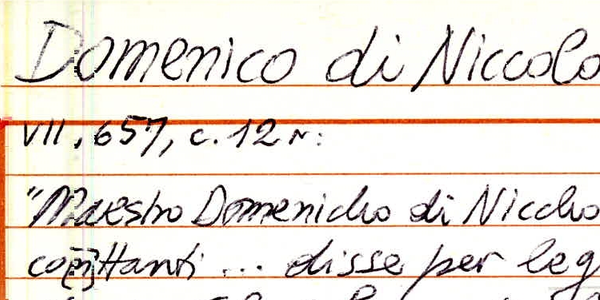 Domenico di Niccolo
VII, 657, c. 12 r:
"Maestro Domenicho di Niccho
co[n]ttanti ... disse per leg